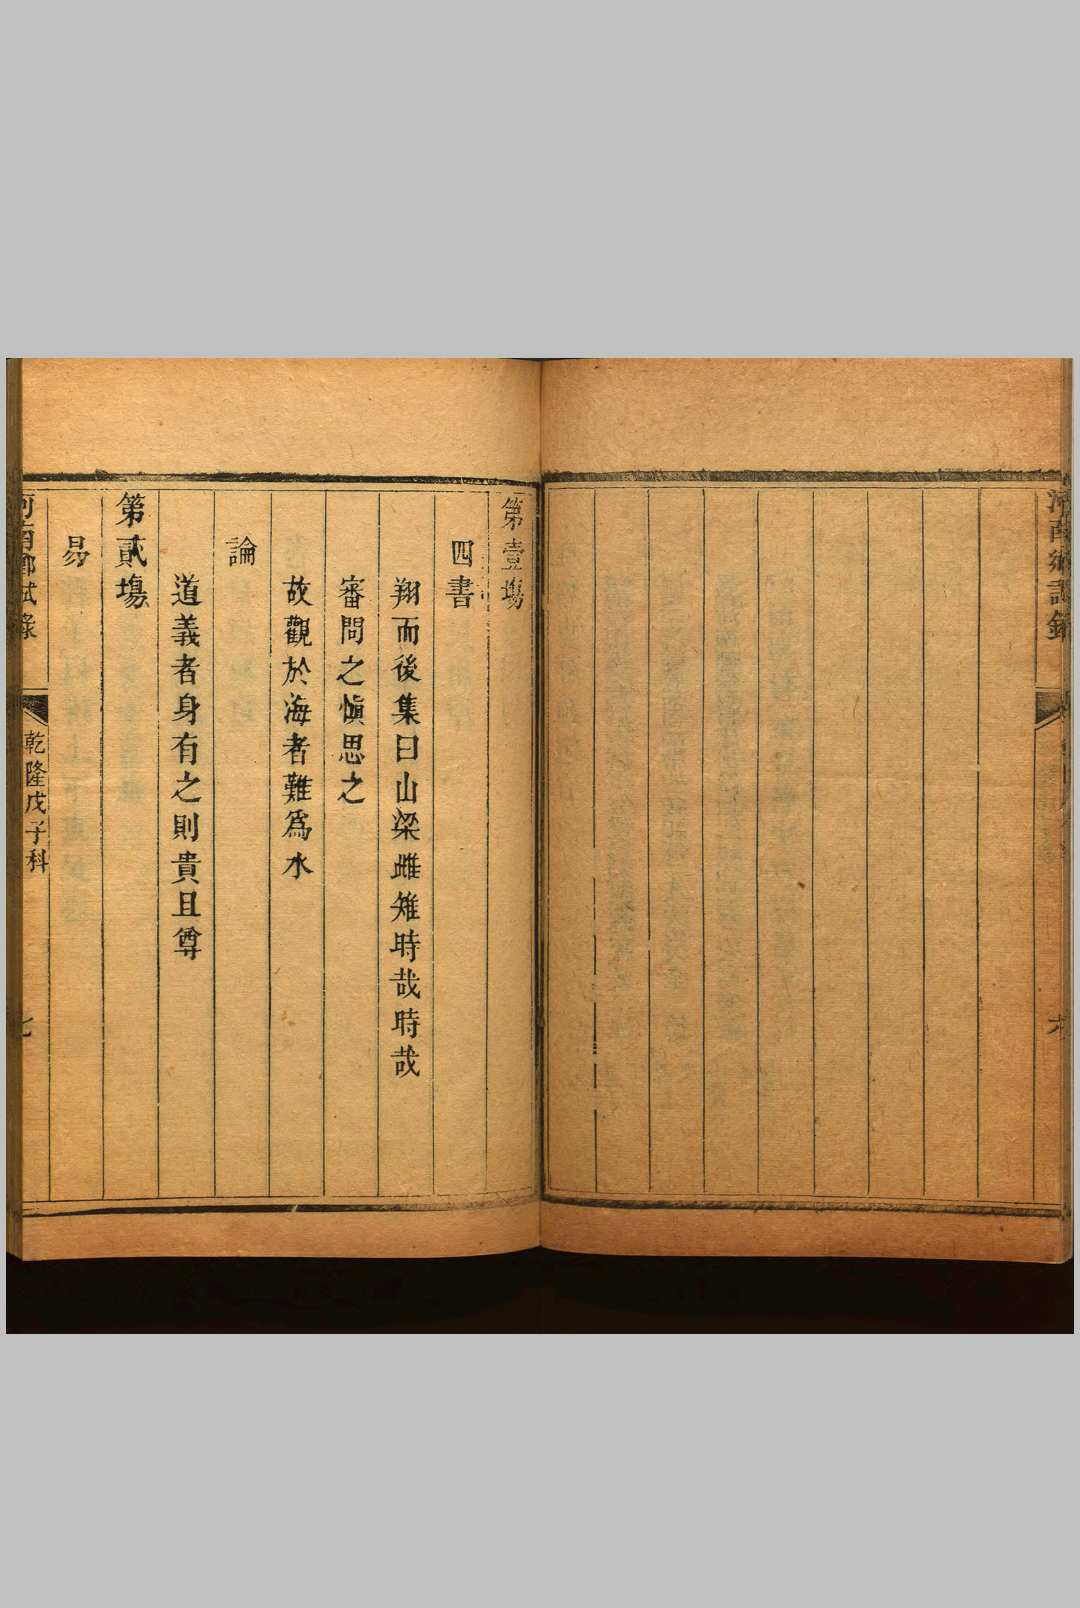 河南鄉試錄
六
第壹場
四書
翔而後集曰山梁雌雉時哉時哉
審問之愼思之
故觀於海者難爲水
論
道義者身有之則貴且尊
第貳場
易
河南鄉試錄
乾隆戊子科
七